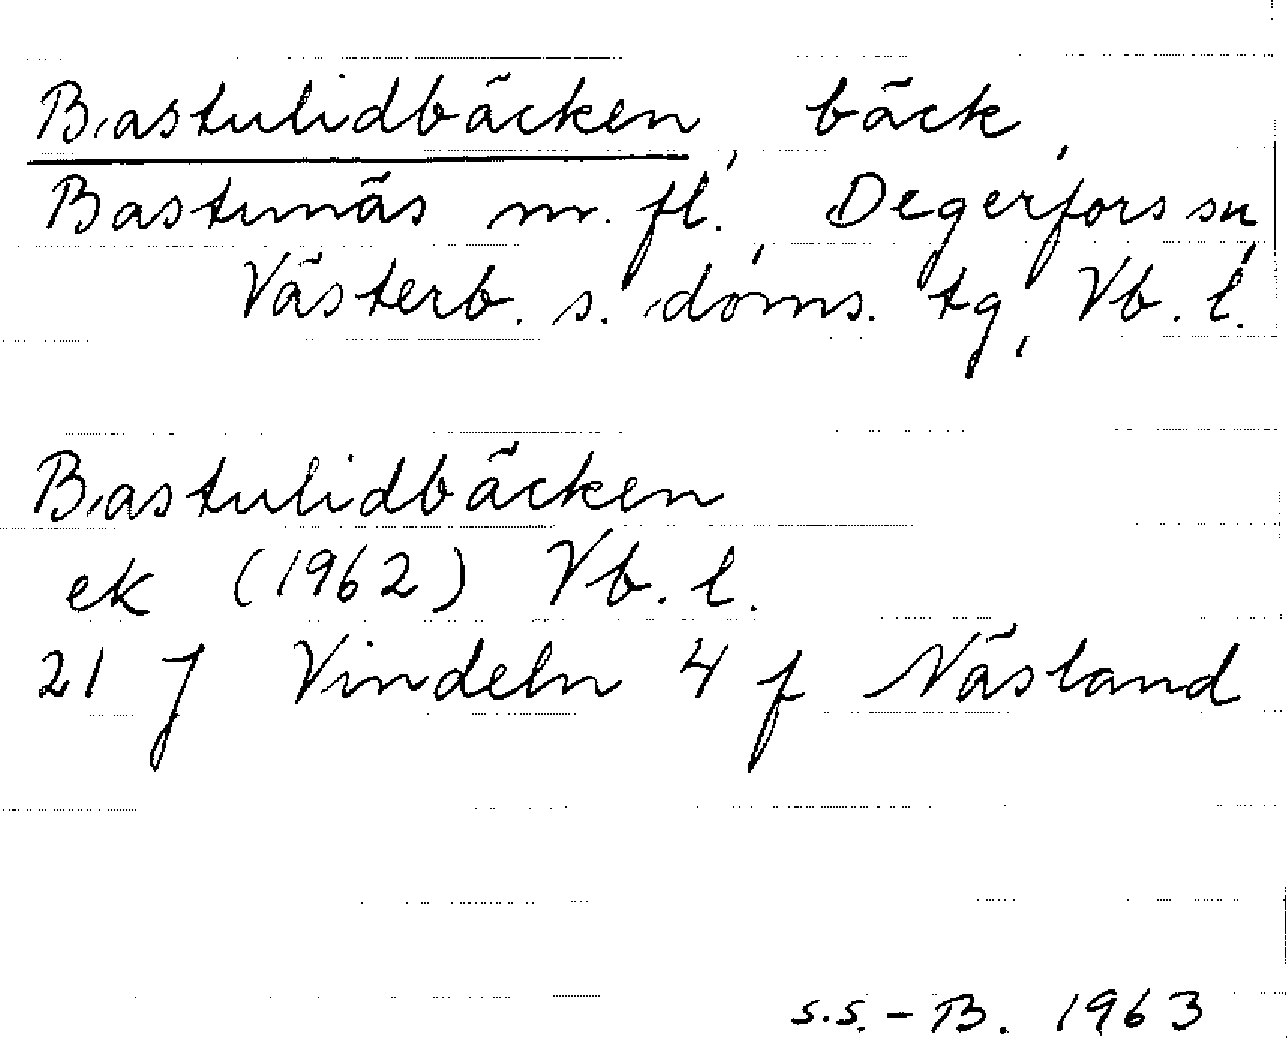 Bastulidbäcken, bäck,
Bastunäs m. fl., Degerfors sn,
Västerb. s. doms. tg, Vb. l.
Bastulidbäcken
ek (1962) Vb. l.
21 J Vindeln 4 f Näsland
s.s.-B. 1963